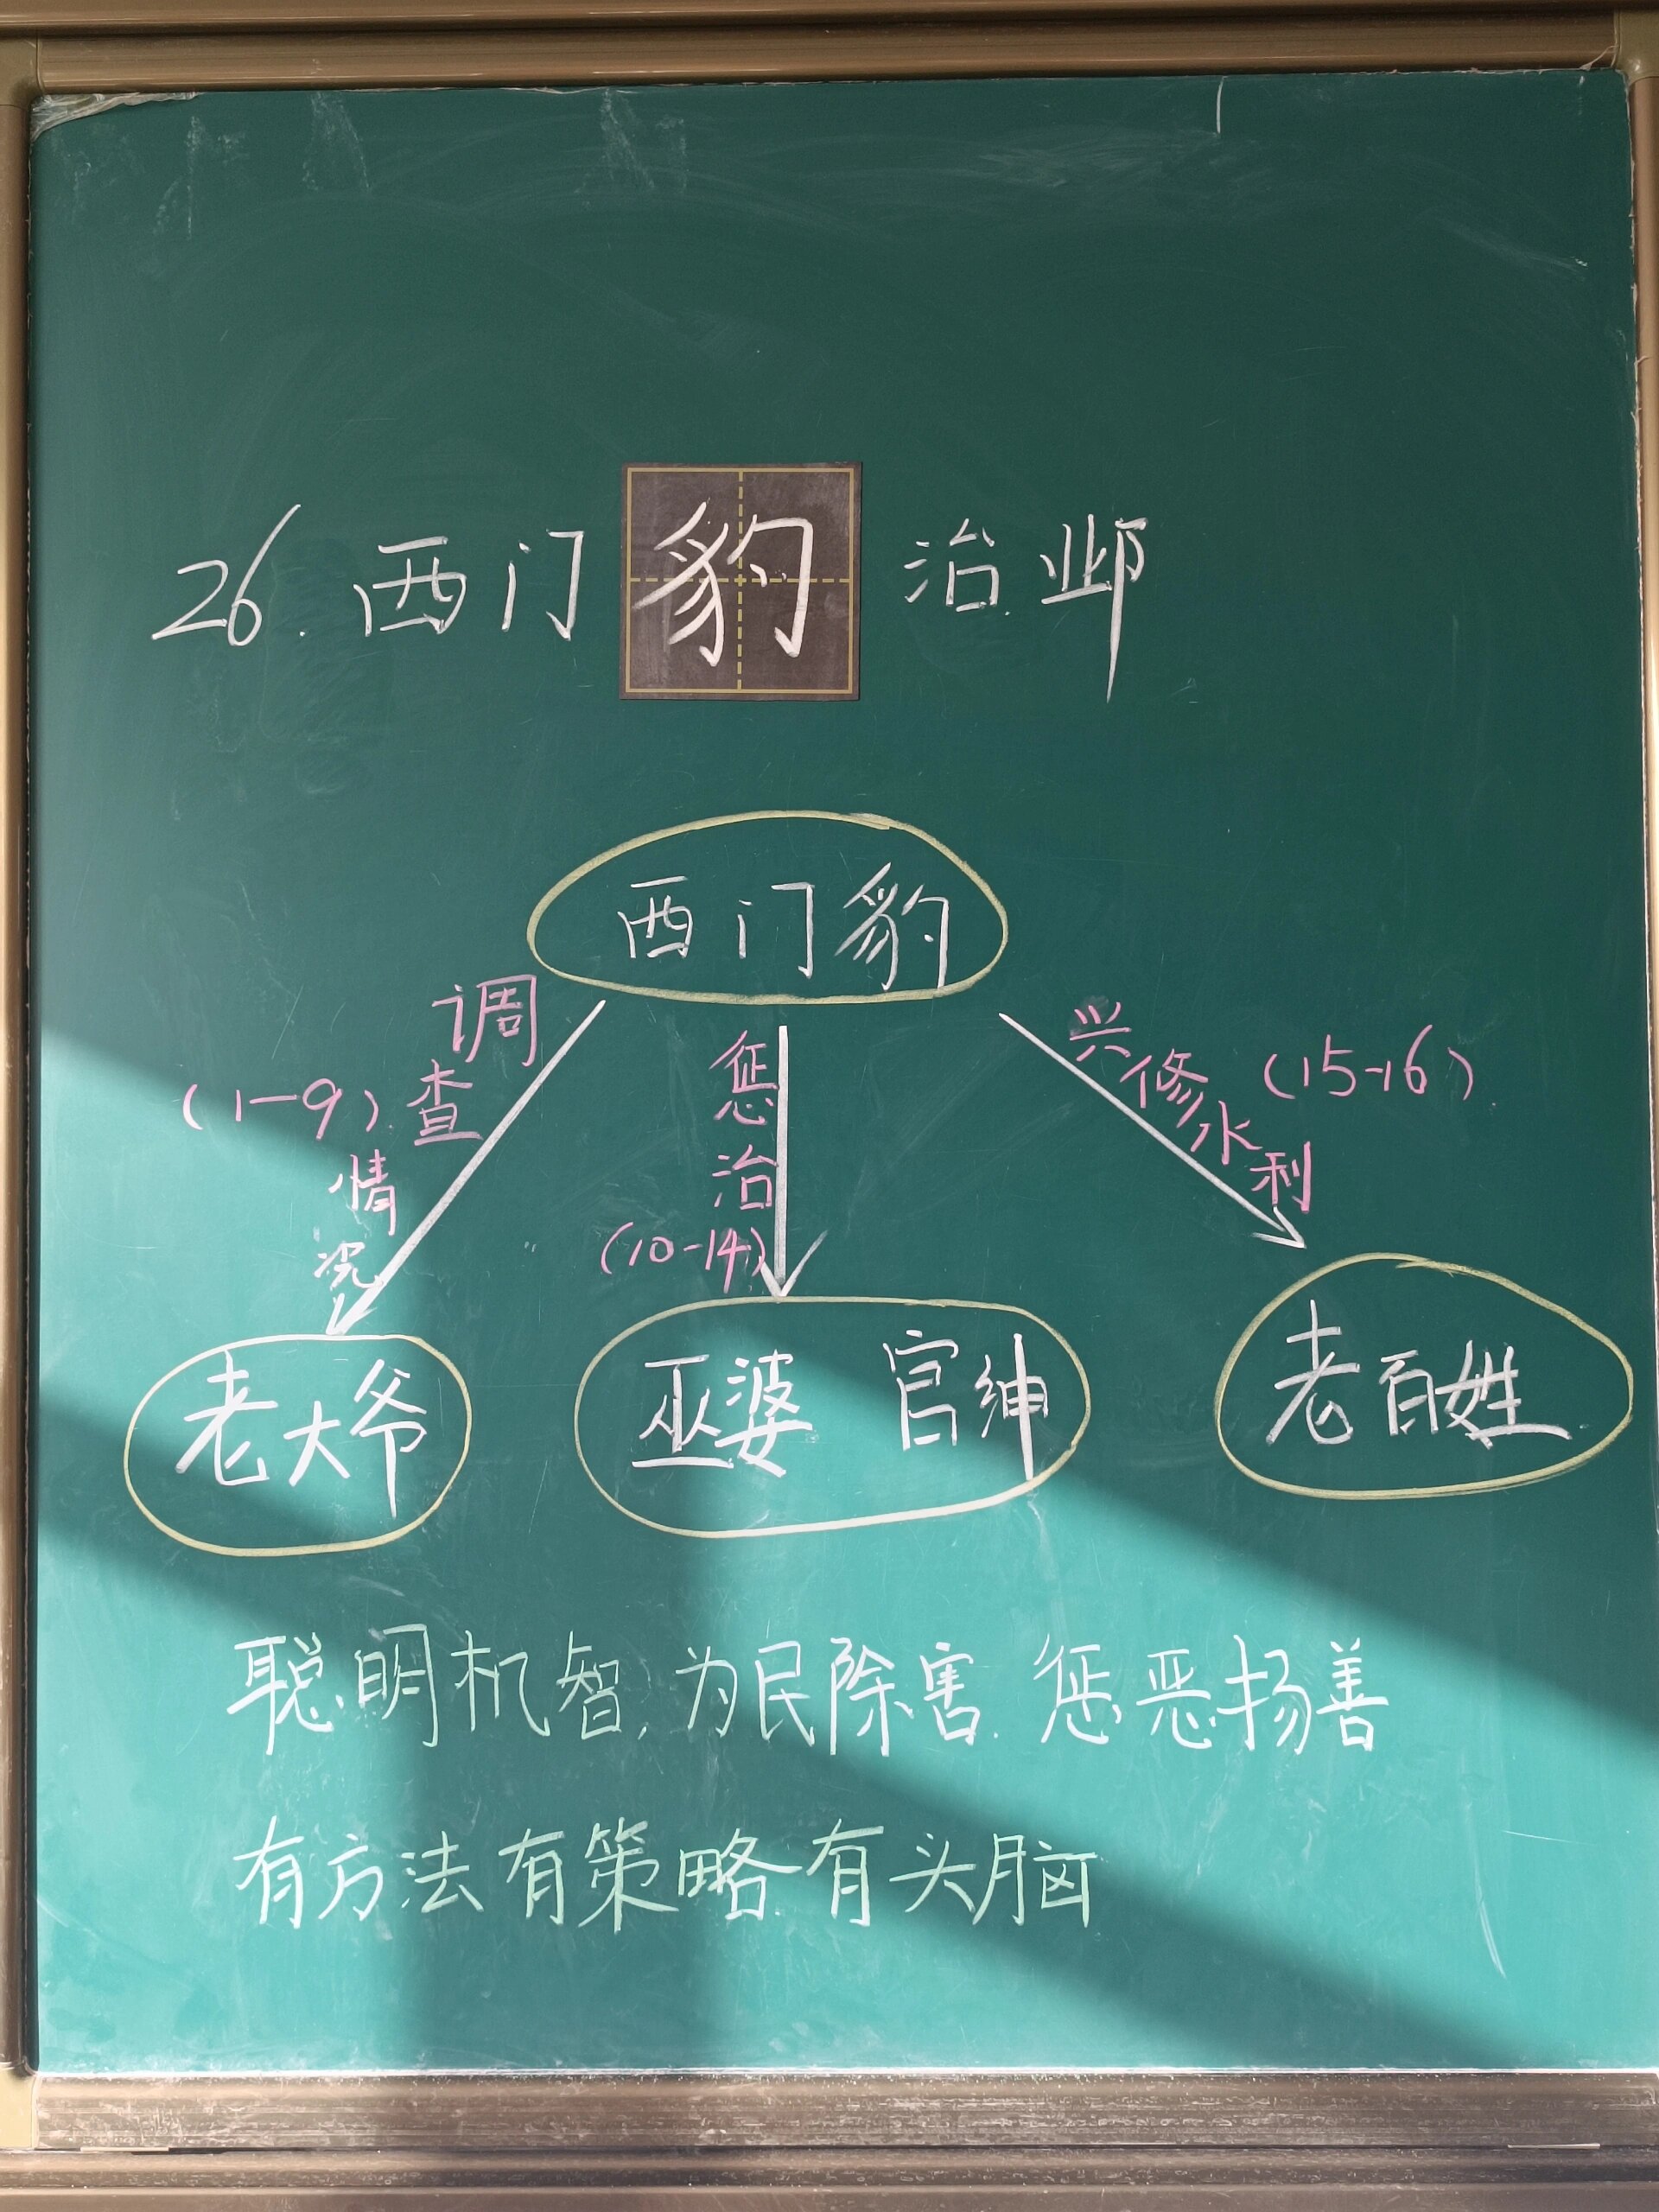 26.西门豹治邺
西门豹
调查情况
(1-9)
惩治
(10-14)
兴修水利
(15-16)
老大爷
巫婆 官绅
老百姓
聪明机智,为民除害.惩恶扬善
有方法有策略有头脑